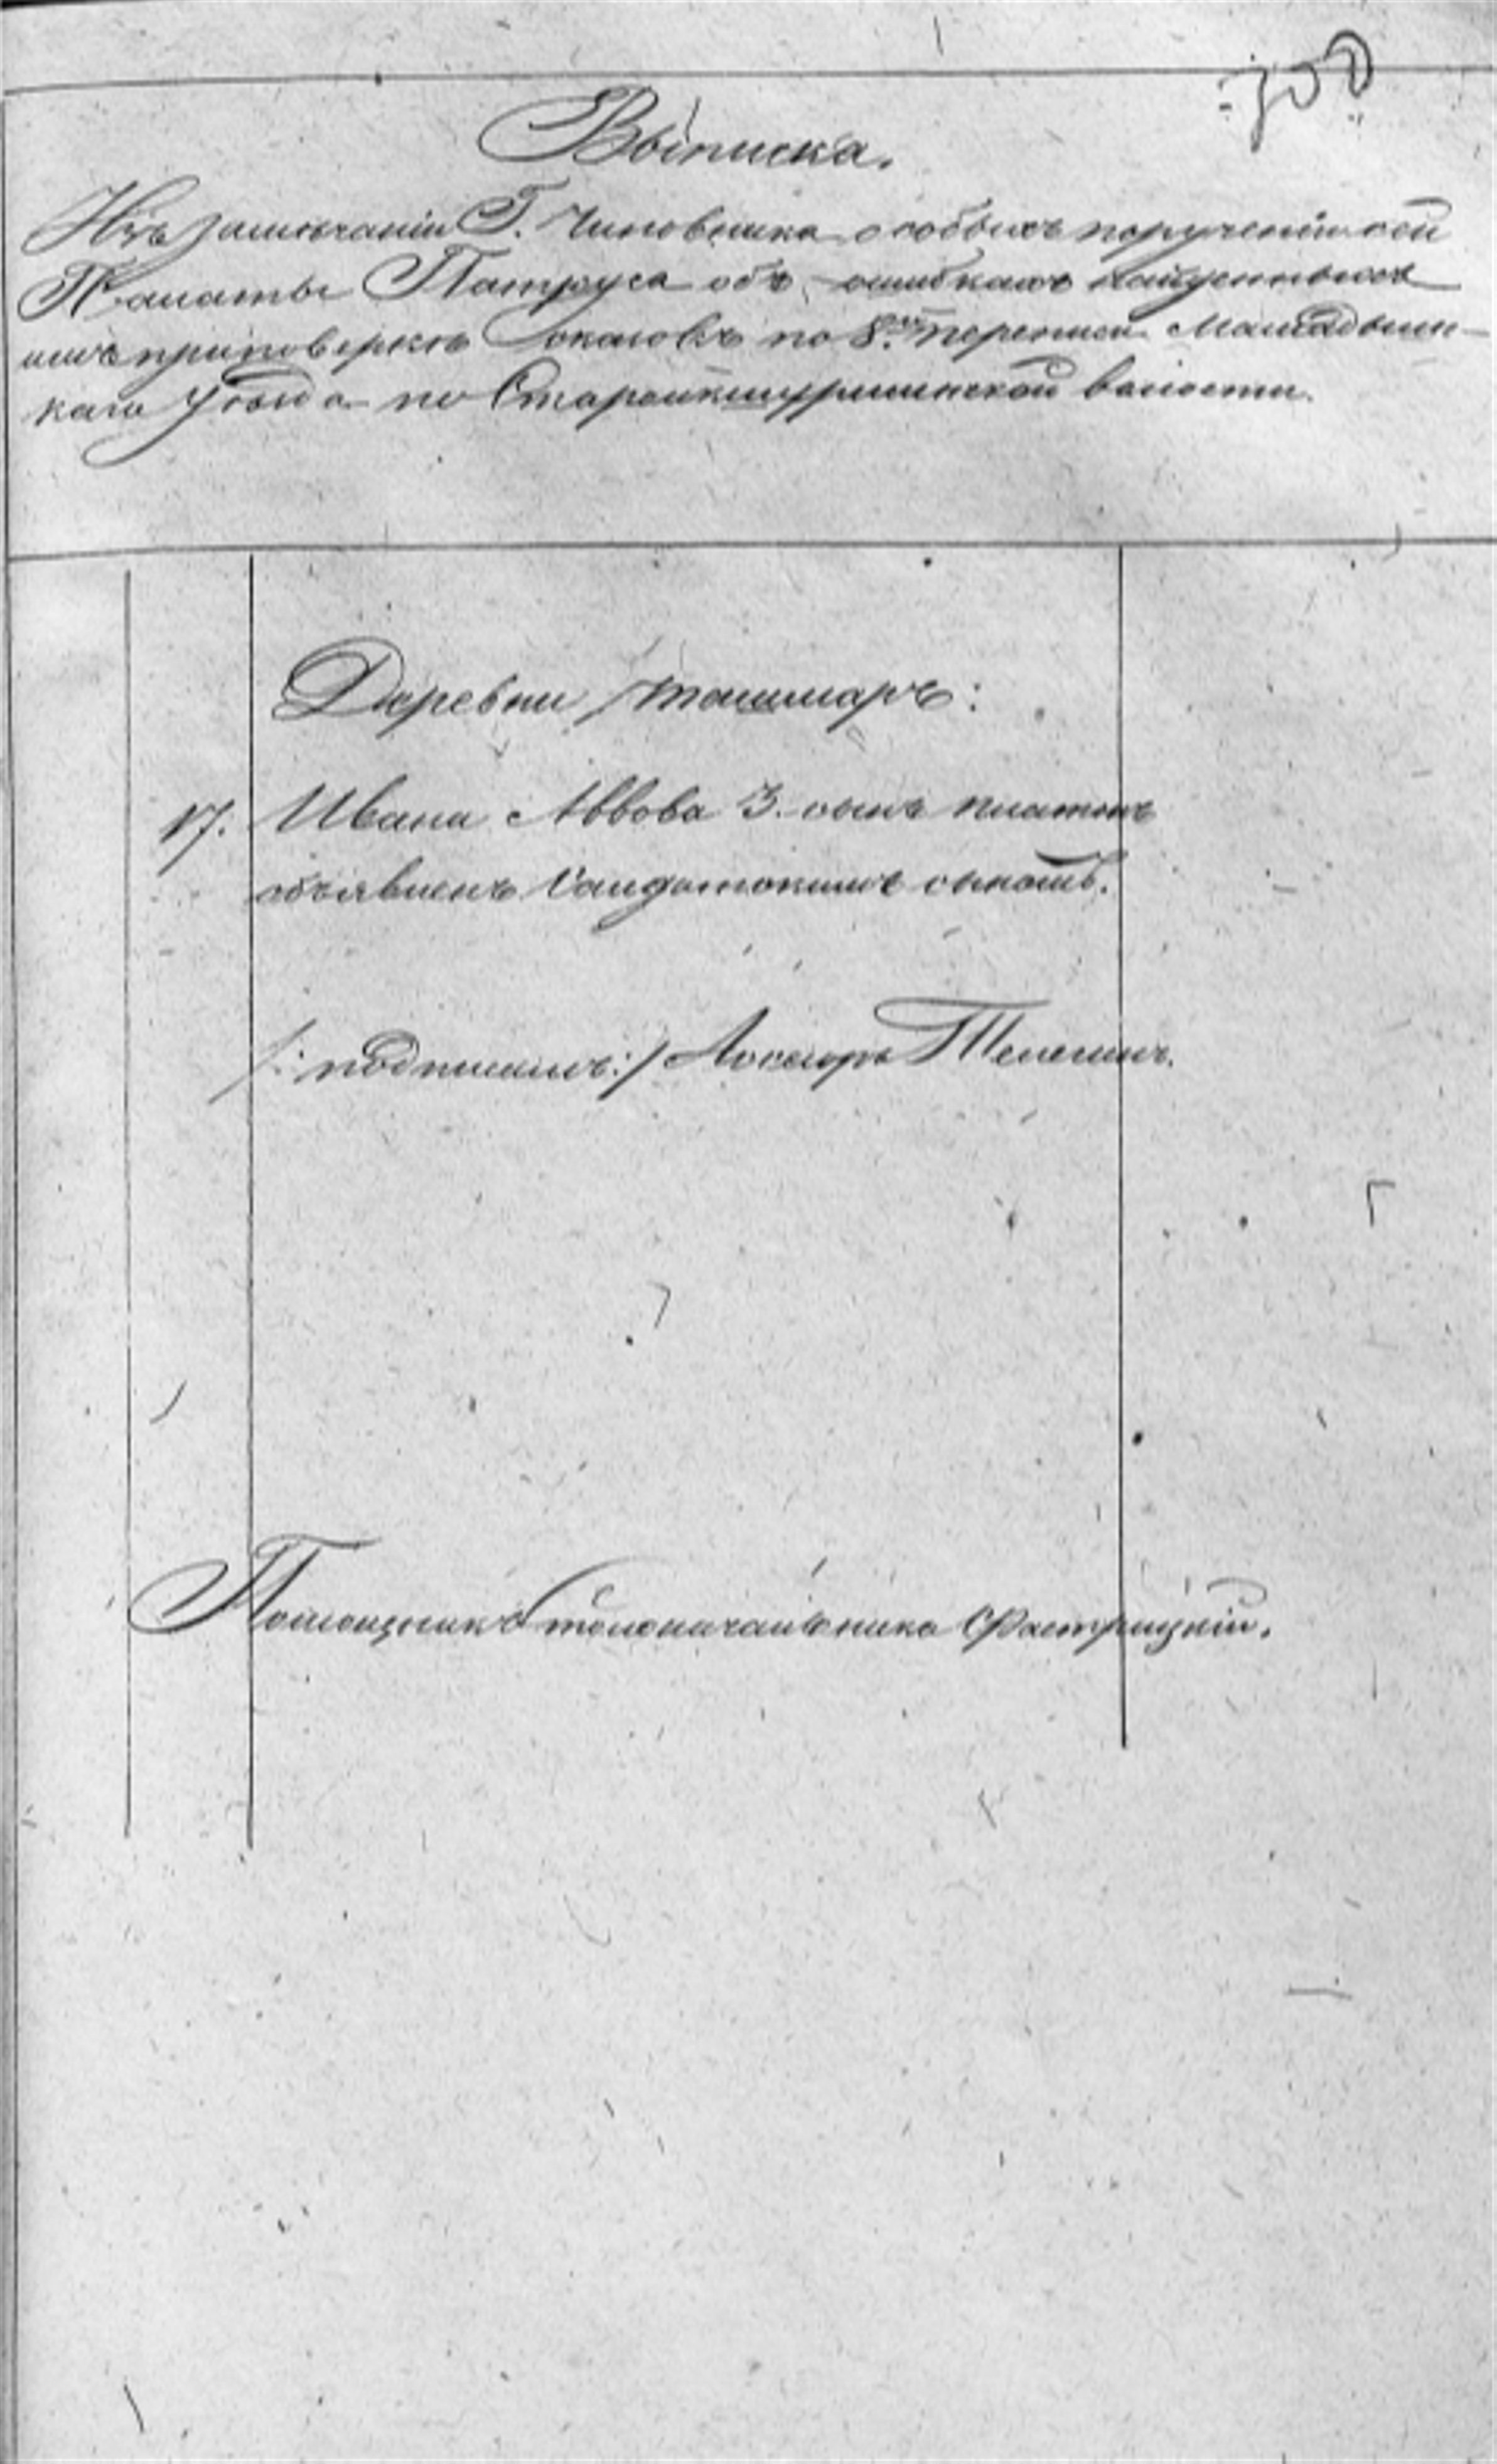 700
Выписка.
Изъ замѣчаніи Г. Чиновника особыхъ порученіи сей
Палаты Патруса объ ошибкахъ найденныхъ
имъ при повѣркѣ скасокъ по 8й переписи Малмыжс-
каго уѣзда по волости.
Деревни
17. Ивана Аввова 3. сынъ Платонъ
объявленъ Салдатскимъ сыномъ.
/: подписалъ:/ Ассесоръ Телегинъ.
Помощникъ Столоначальника